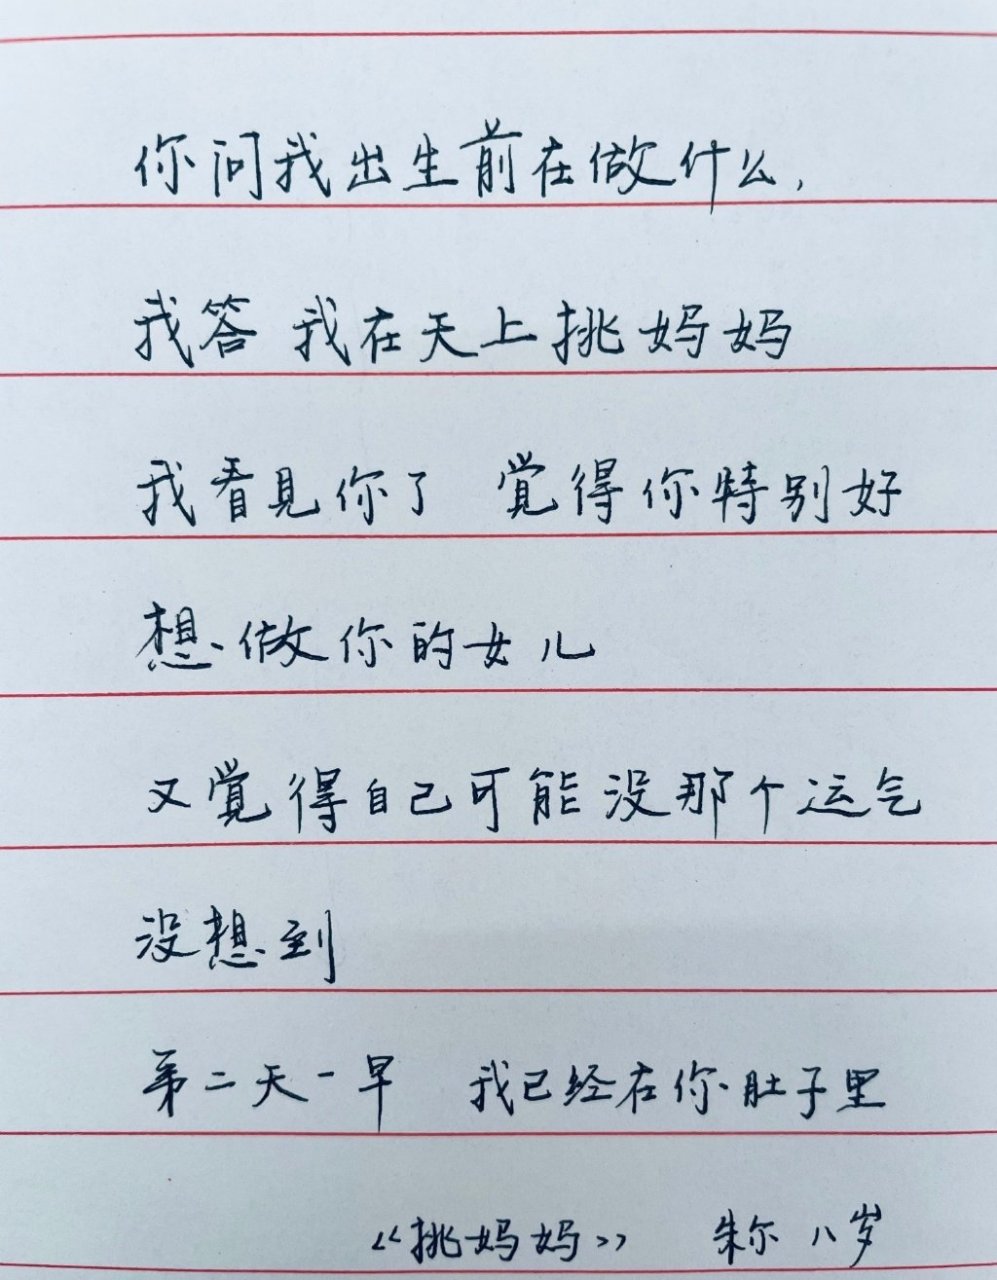 你问我出生前在做什么,
我答 我在天上挑妈妈
我看見你了 覚得你特别好
想做你的女儿
又覚得自己可能没那个运气
没想到
第二天一早 我已经在你肚子里
《挑妈妈》 朱尔 八岁